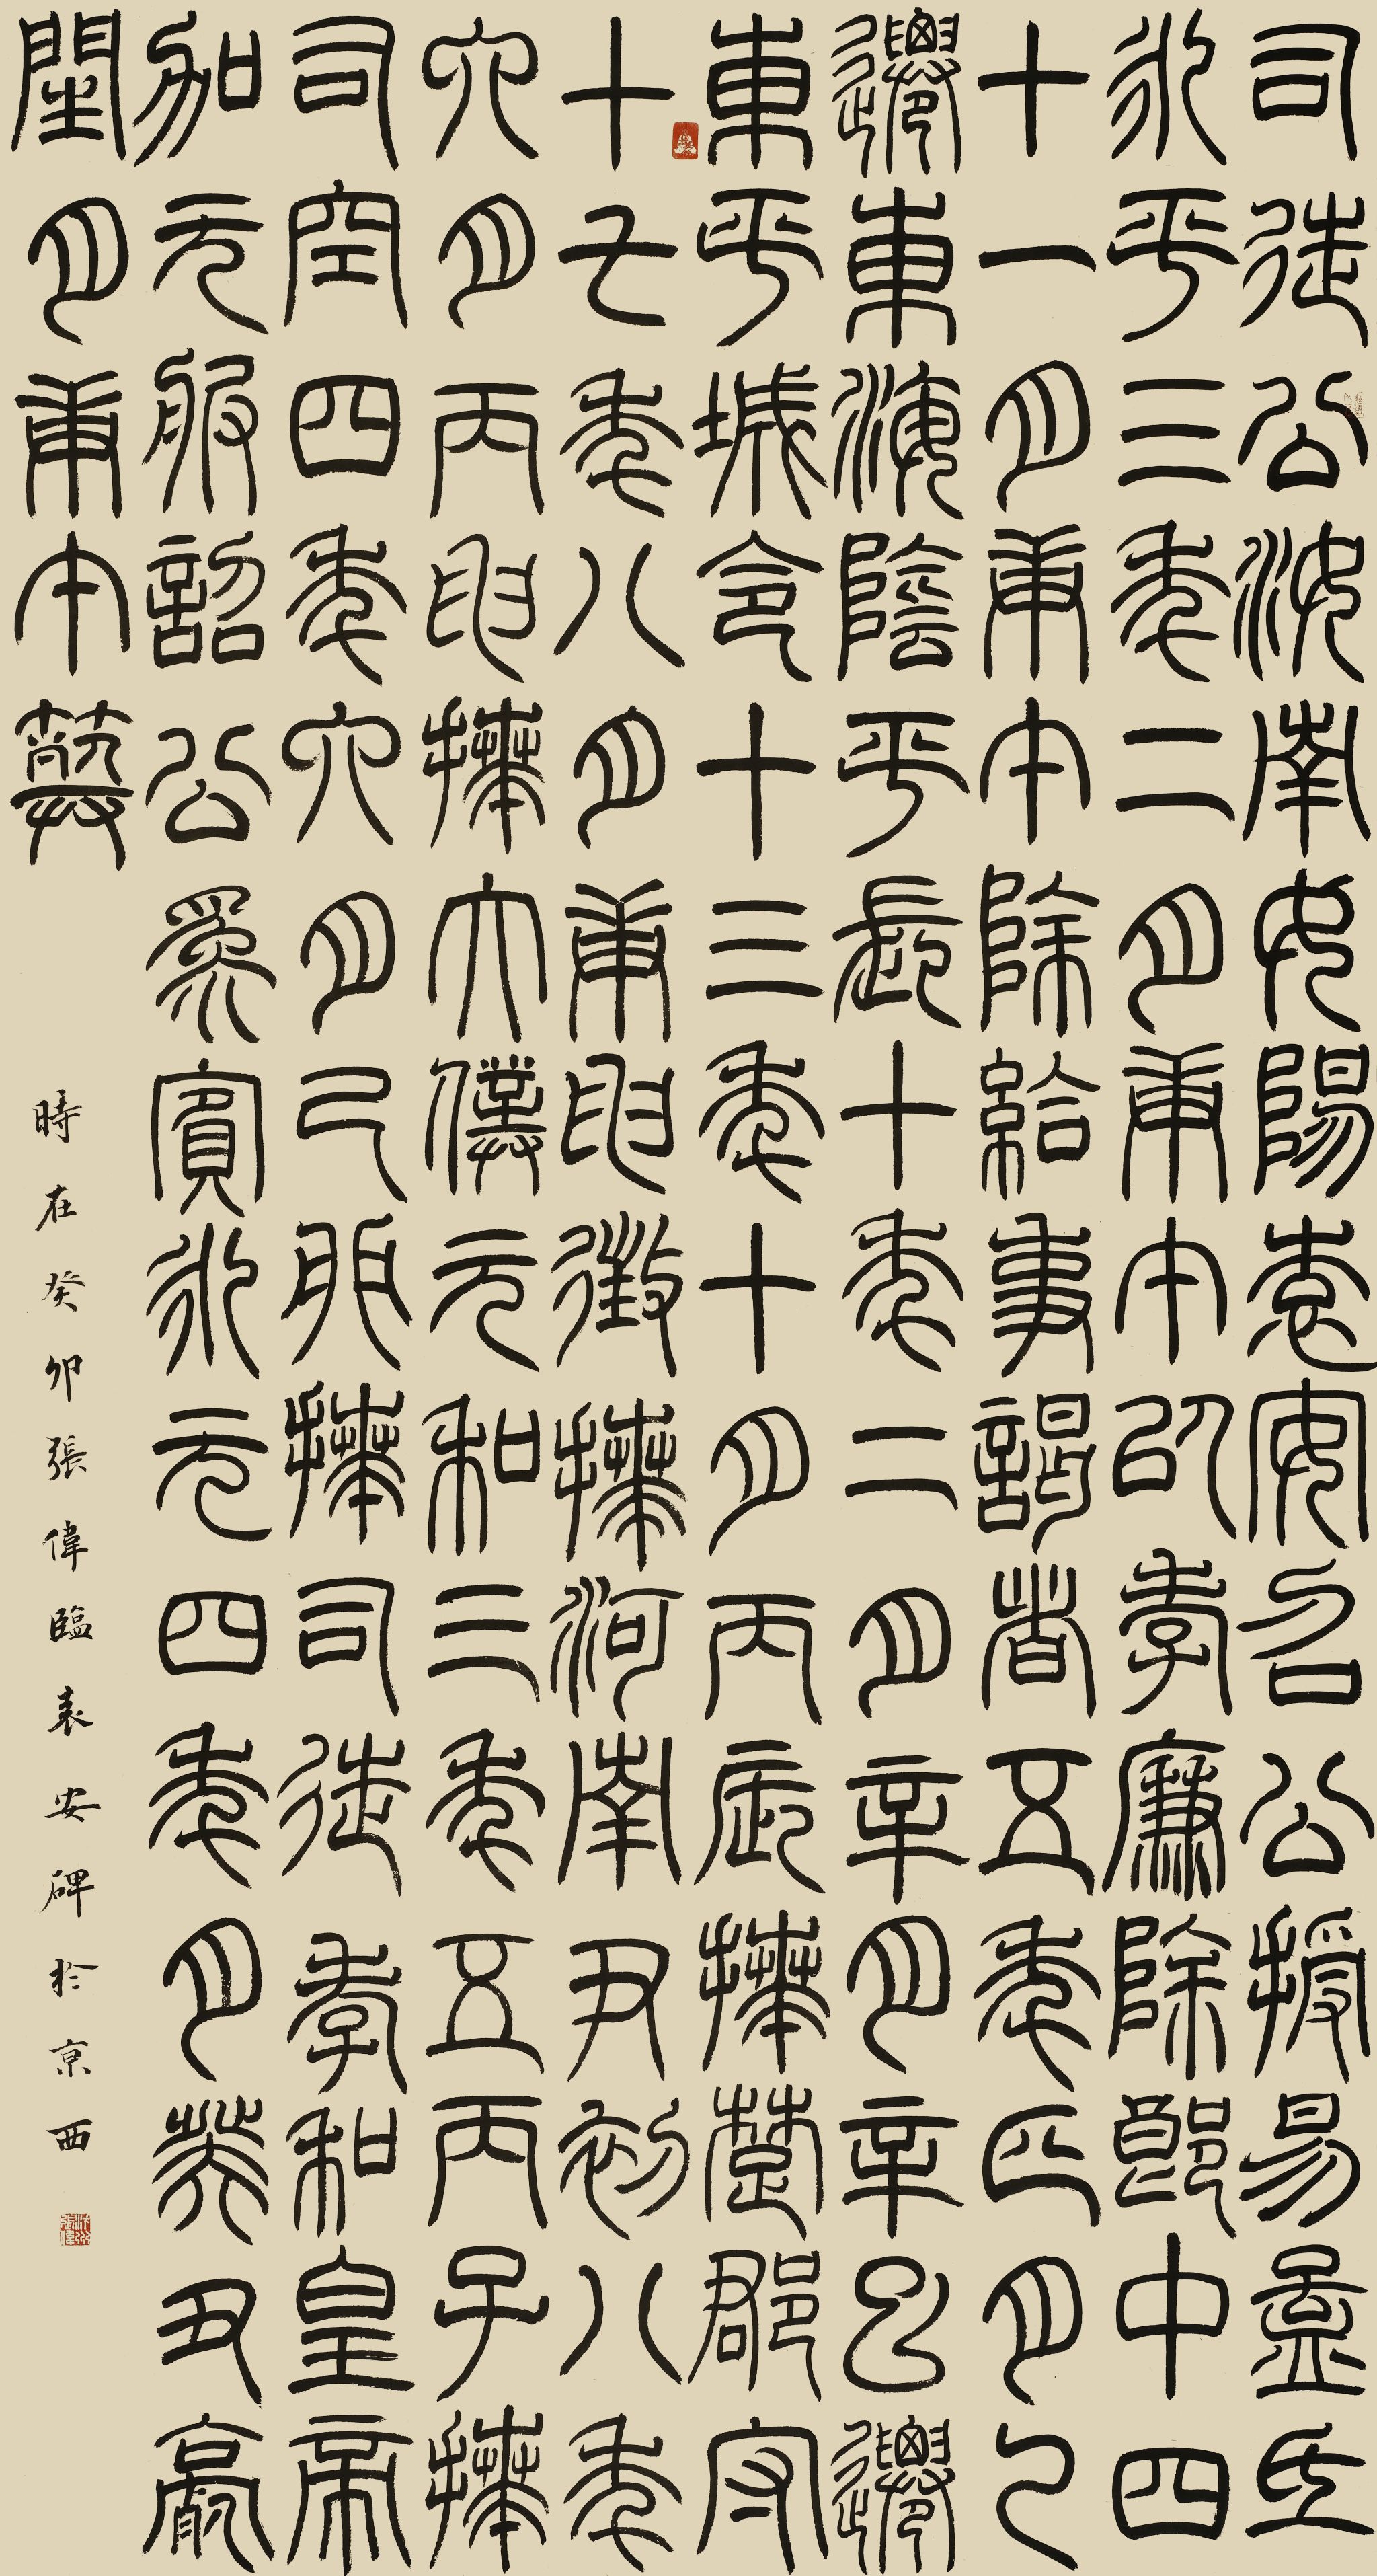 司徒公汝南女陽袁安召公授易孟氏
永平三年二月庚午以孝廉除郎中四
十一月庚午除給事謁者五年正月乙
遷東海陰平長十年二月辛月辛巳遷
東平城令十三年十月丙辰拜楚郡守
十七年八月庚申徵拜河南尹初八年
六月丙申拜大僕元和三年五丙子拜
司空四年六月己卯拜司徒孝和皇帝
加元服詔公為賓永元四年月癸丑薨
閏月庚午葬
時在癸卯張偉臨袁安碑於京西